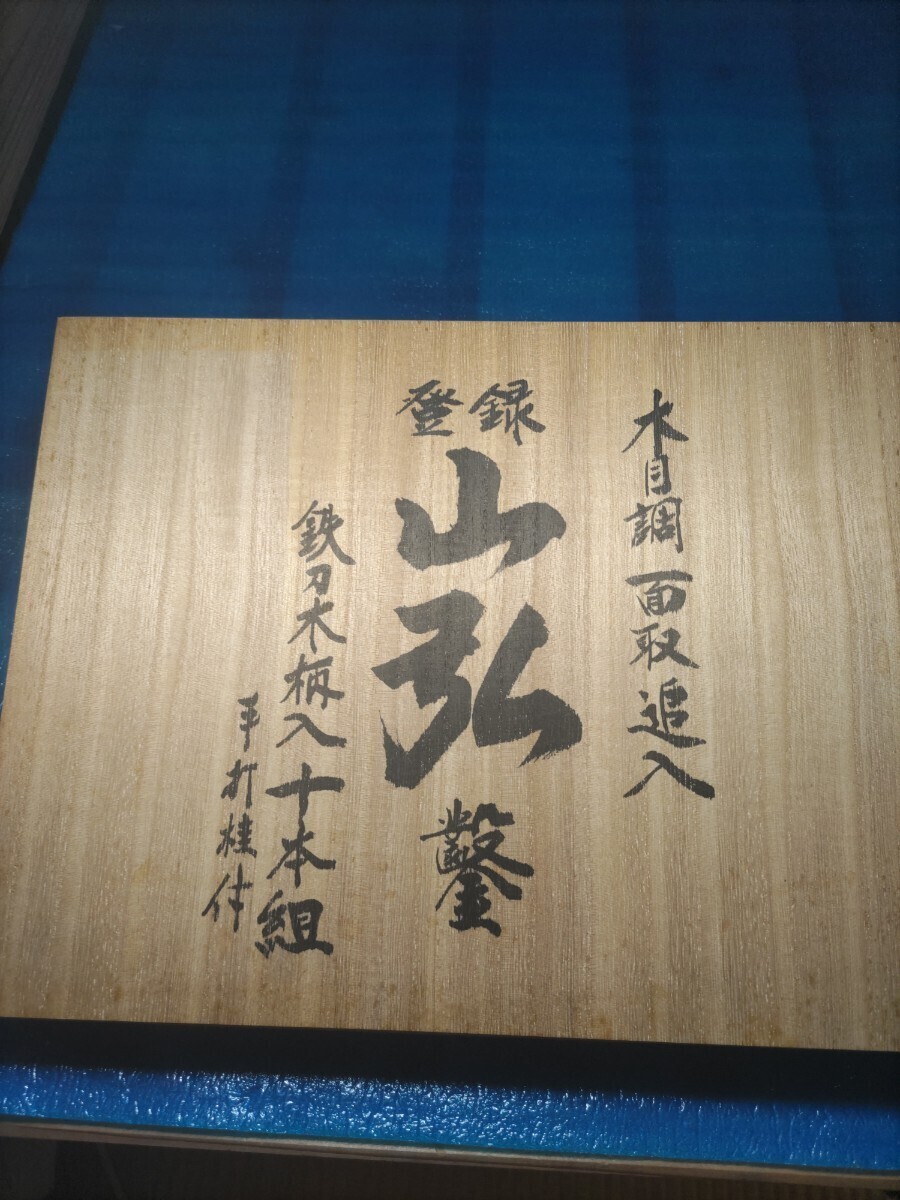 木目調面取追入
登録
山弘
鑿
鉄刀木柄入十本組
平打桂付